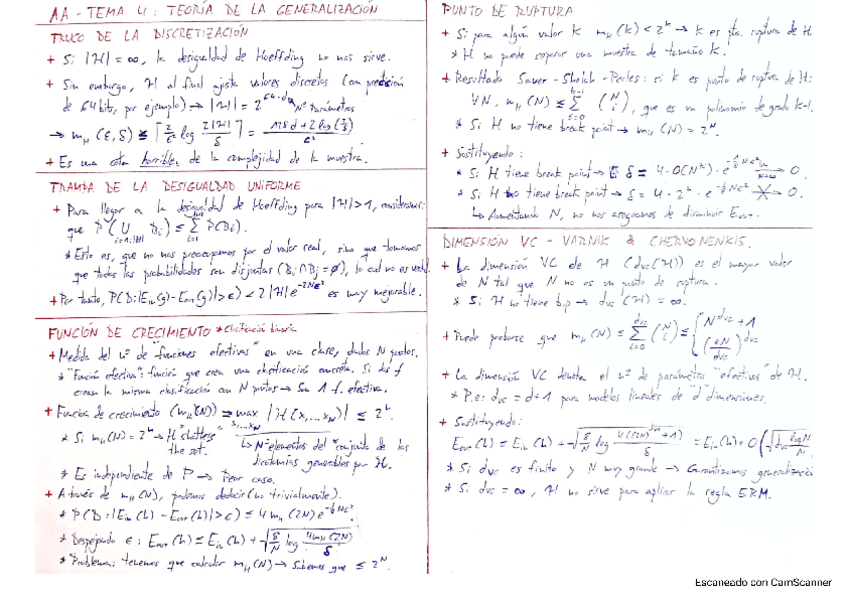 AA - TEMA 4 : TEORÍA DE LA GENERALIZACIÓN
TRUCO DE LA DISCRETIZACIÓN
+ Si |H| = ∞, la desigualdad de Hoeffding no nos sirve.
+ Sin embargo, H al final ajusta valores discretos (con precisión
de 64 bits, por ejemplo) → |H| = 2^64·d Nº Parámetros
→ m_H (ε, δ) ≤ ⌈ 2/ε² log 2|H|/δ ⌉ = (128d + 2 log(2/δ))/ε²
+ Es una cota horrible de la complejidad de la muestra.
TRAMPA DE LA DESIGUALDAD UNIFORME
+ Para llegar a la desigualdad de Hoeffding para |H| > 1, consideramos
que P(∪ Bi) ≤ Σ P(Bi).
i=1..|H| i=1
* Esto es, que no nos preocupamos por el valor real, sino que tomamos
que todas las probabilidades son disjuntas (Bi ∩ Bj = ∅), lo cual no es verdad.
+ Por tanto, P(D: |Ein(g) - Eout(g)| > ε) < 2|H| e^-2Nε² es muy mejorable.
FUNCIÓN DE CRECIMIENTO * Clasificación binaria
+ Medida del nº de "funciones efectivas" en una clase, dados N puntos.
* "Función efectiva": función que crea una clasificación concreta. Si dos f
crean la misma clasificación con N puntos → Son 1 f. efectiva.
+ Función de crecimiento (m_H(N)) = max |H(x1,...xN)| ≤ 2^N.
x1,...xN
* Si m_H(N) = 2^N → H "shatters" the set.
↳ Nº elementos del conjunto de las
dicotomías generables por H.
* Es independiente de P → Peor caso.
+ A través de m_H(N), podemos deducir (no trivialmente).
* P(D: |Ein(h) - Eout(h)| > ε) ≤ 4 m_H (2N) e^-⅛Nε².
* Despejando ε : Eout(h) ≤ Ein(h) + √(8/N log 4m_H(2N)/δ)
* Problema: tenemos que calcular m_H(N) → Sabemos que ≤ 2^N.
PUNTO DE RUPTURA
+ Si para algún valor k m_H(k) < 2^k → k es pto. ruptura de H
* H no puede separar una muestra de tamaño k.
+ Resultado Sauer - Shelah - Perles: si k es punto de ruptura de H:
∀N, m_H(N) ≤ Σ_{i=0}^{k-1} (N i), que es un polinomio de grado k-1.
* Si H no tiene break point → m_H(N) = 2^N.
+ Sustituyendo :
* Si H tiene break point → δ = 4·O(N^k)·e^-⅛Nε² → 0.
N→∞
* Si H no tiene break point → δ = 4·2^N·e^-⅛Nε² ↛ 0.
↳ Aumentando N, no nos aseguramos de disminuir Eout.
DIMENSIÓN VC - VAPNIK & CHERVONENKIS.
+ La dimensión VC de H (dvc(H)) es el mayor valor
de N tal que N no es un punto de ruptura.
* Si H no tiene b.p → dvc(H) = ∞.
+ Puede probarse que m_H(N) ≤ Σ_{i=0}^{dvc} (N i) ≤ { N^dvc + 1
(eN/dvc)^dvc
+ La dimensión VC denota el nº de parámetros "efectivos" de H.
* P.e: dvc = d+1 para modelos lineales de "d" dimensiones.
+ Sustituyendo:
Eout(h) ≤ Ein(h) + √(8/N log 4((2N)^dvc + 1)/δ) = Ein(h) + O(√(dvc logN/N))
* Si dvc es finito y N muy grande → Garantizamos generalización
* Si dvc = ∞, H no sirve para aplicar la regla ERM.
Escaneado con CamScanner